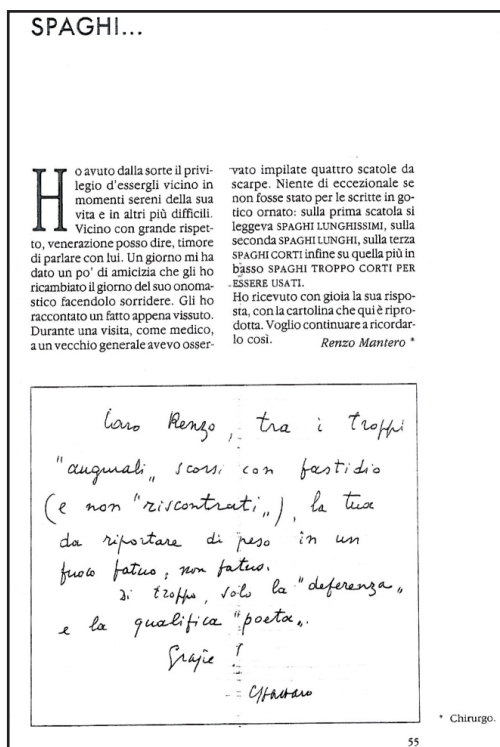 SPAGHI...
Ho avuto dalla sorte il privi-
legio d'essergli vicino in
momenti sereni della sua
vita e in altri più difficili.
Vicino con grande rispet-
to, venerazione posso dire, timore
di parlare con lui. Un giorno mi ha
dato un po' di amicizia che gli ho
ricambiato il giorno del suo onoma-
stico facendolo sorridere. Gli ho
raccontato un fatto appena vissuto.
Durante una visita, come medico,
a un vecchio generale avevo osser-
vato impilate quattro scatole da
scarpe. Niente di eccezionale se
non fosse stato per le scritte in go-
tico ornato: sulla prima scatola si
leggeva SPAGHI LUNGHISSIMI, sulla
seconda SPAGHI LUNGHI, sulla terza
SPAGHI CORTI infine su quella più in
basso SPAGHI TROPPO CORTI PER
ESSERE USATI.
Ho ricevuto con gioia la sua rispo-
sta, con la cartolina che qui è ripro-
dotta. Voglio continuare a ricordar-
lo così. Renzo Mantero *
Caro Renzo, tra i troppi
"augurali„ scorsi con fastidio
(e non "riscontrati„), la tua
da riportare di peso in un
fuoco fatuo, non fatuo.
Di troppo, solo la "deferenza„
e la qualifica "poeta„.
Grazie!
* Chirurgo.
55